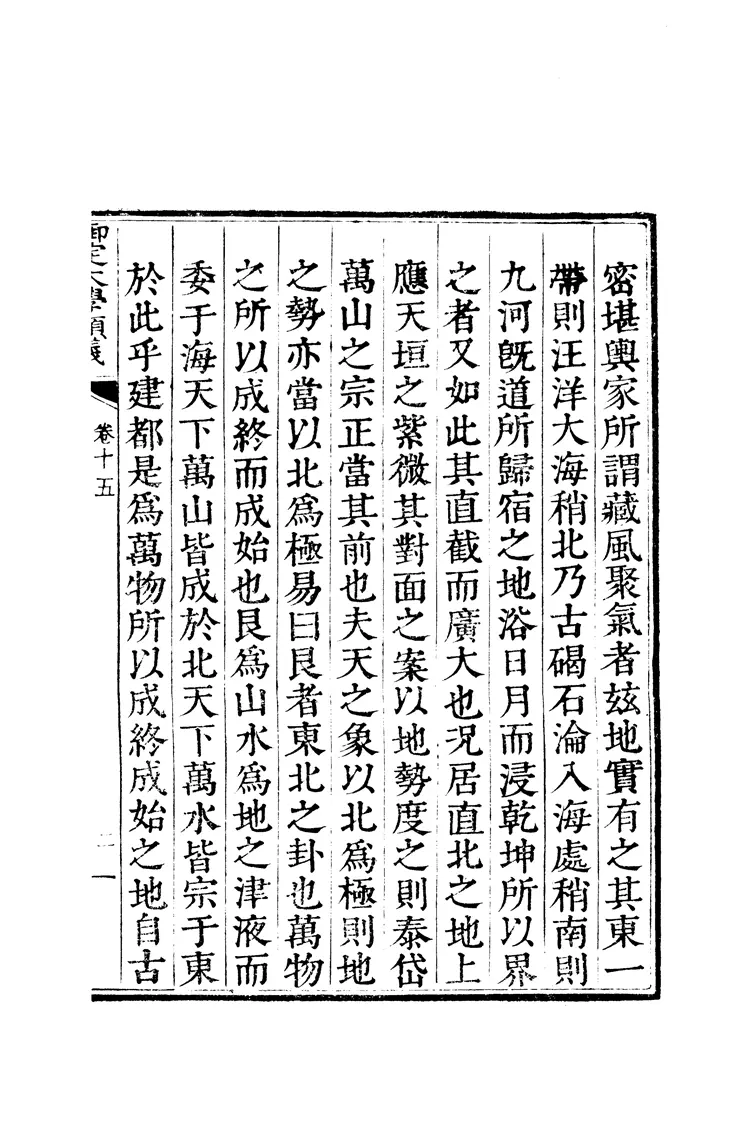 密堪輿家所謂藏風聚氣者玆地實有之其東一
帶則汪洋大海稍北乃古碣石淪入海處稍南則
九河既道所歸宿之地浴日月而浸乾坤所以界
之者又如此其直截而廣大也况居直北之地上
應天垣之紫微其對面之案以地勢度之則泰岱
萬山之宗正當其前也夫天之象以北爲極則地
之勢亦當以北爲極易曰艮者東北之卦也萬物
之所以成終而成始也艮爲山水爲地之津液而
委于海天下萬山皆成於北天下萬水皆宗于東
於此乎建都是爲萬物所以成終成始之地自古
卷十五